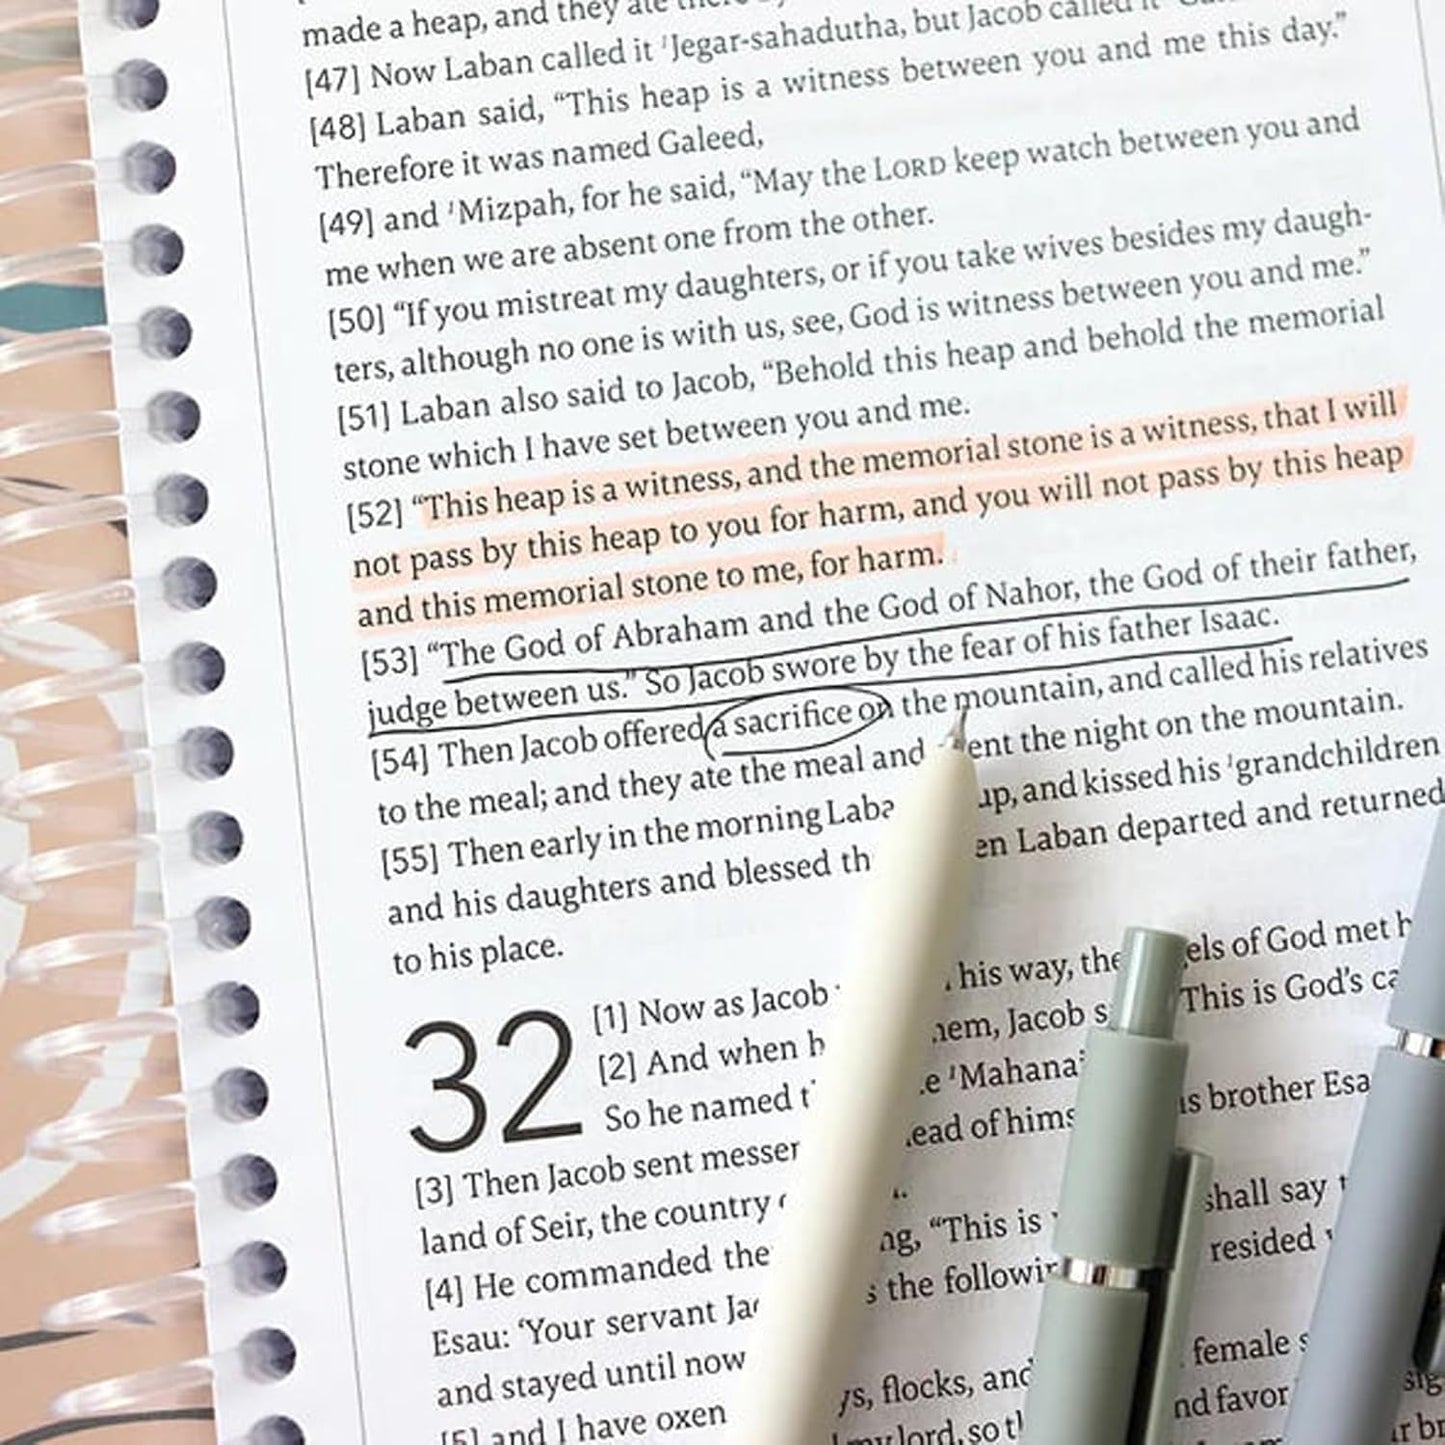 made a heap, and they ate
[47] Now Laban called it ᴵJegar-sahadutha, but Jacob called it
[48] Laban said, “This heap is a witness between you and me this day.”
Therefore it was named Galeed,
[49] and ᴵMizpah, for he said, “May the LORD keep watch between you and
me when we are absent one from the other.
[50] “If you mistreat my daughters, or if you take wives besides my daugh-
ters, although no one is with us, see, God is witness between you and me.”
[51] Laban also said to Jacob, “Behold this heap and behold the memorial
stone which I have set between you and me.
[52] “This heap is a witness, and the memorial stone is a witness, that I will
not pass by this heap to you for harm, and you will not pass by this heap
and this memorial stone to me, for harm.
[53] “The God of Abraham and the God of Nahor, the God of their father,
judge between us.” So Jacob swore by the fear of his father Isaac.
[54] Then Jacob offered a sacrifice on the mountain, and called his relatives
to the meal; and they ate the meal and ent the night on the mountain.
[55] Then early in the morning Laba up, and kissed his ᴵgrandchildren
and his daughters and blessed th en Laban departed and returned
to his place.
32
[1] Now as Jacob his way, the els of God met h
[2] And when h hem, Jacob s This is God’s ca
So he named t e ᴵMahana
[3] Then Jacob sent messen ead of hims is brother Esa
land of Seir, the country
[4] He commanded the ng, “This is shall say
Esau: ‘Your servant Jac s the followin resided
and stayed until now
[5] and I have oxen ys, flocks, and female s
my lord, so th nd favor sig